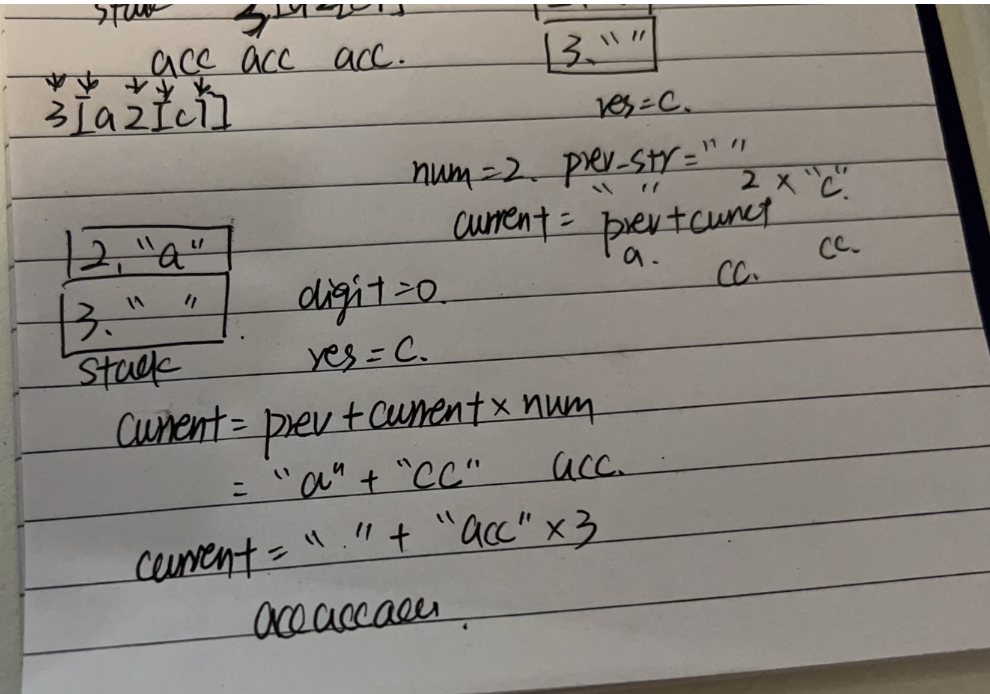 acc acc acc.
3. " "
3[a2[c]]
res=c.
num=2. prev-str=" "
" " 2 × "c".
current = prev+
a. cc. cc.
2, "a"
3. " " digit=0.
stack res=c.
current= prev+current×num
= "a" + "cc" acc.
current= " ." + "acc"×3
accaccacc.